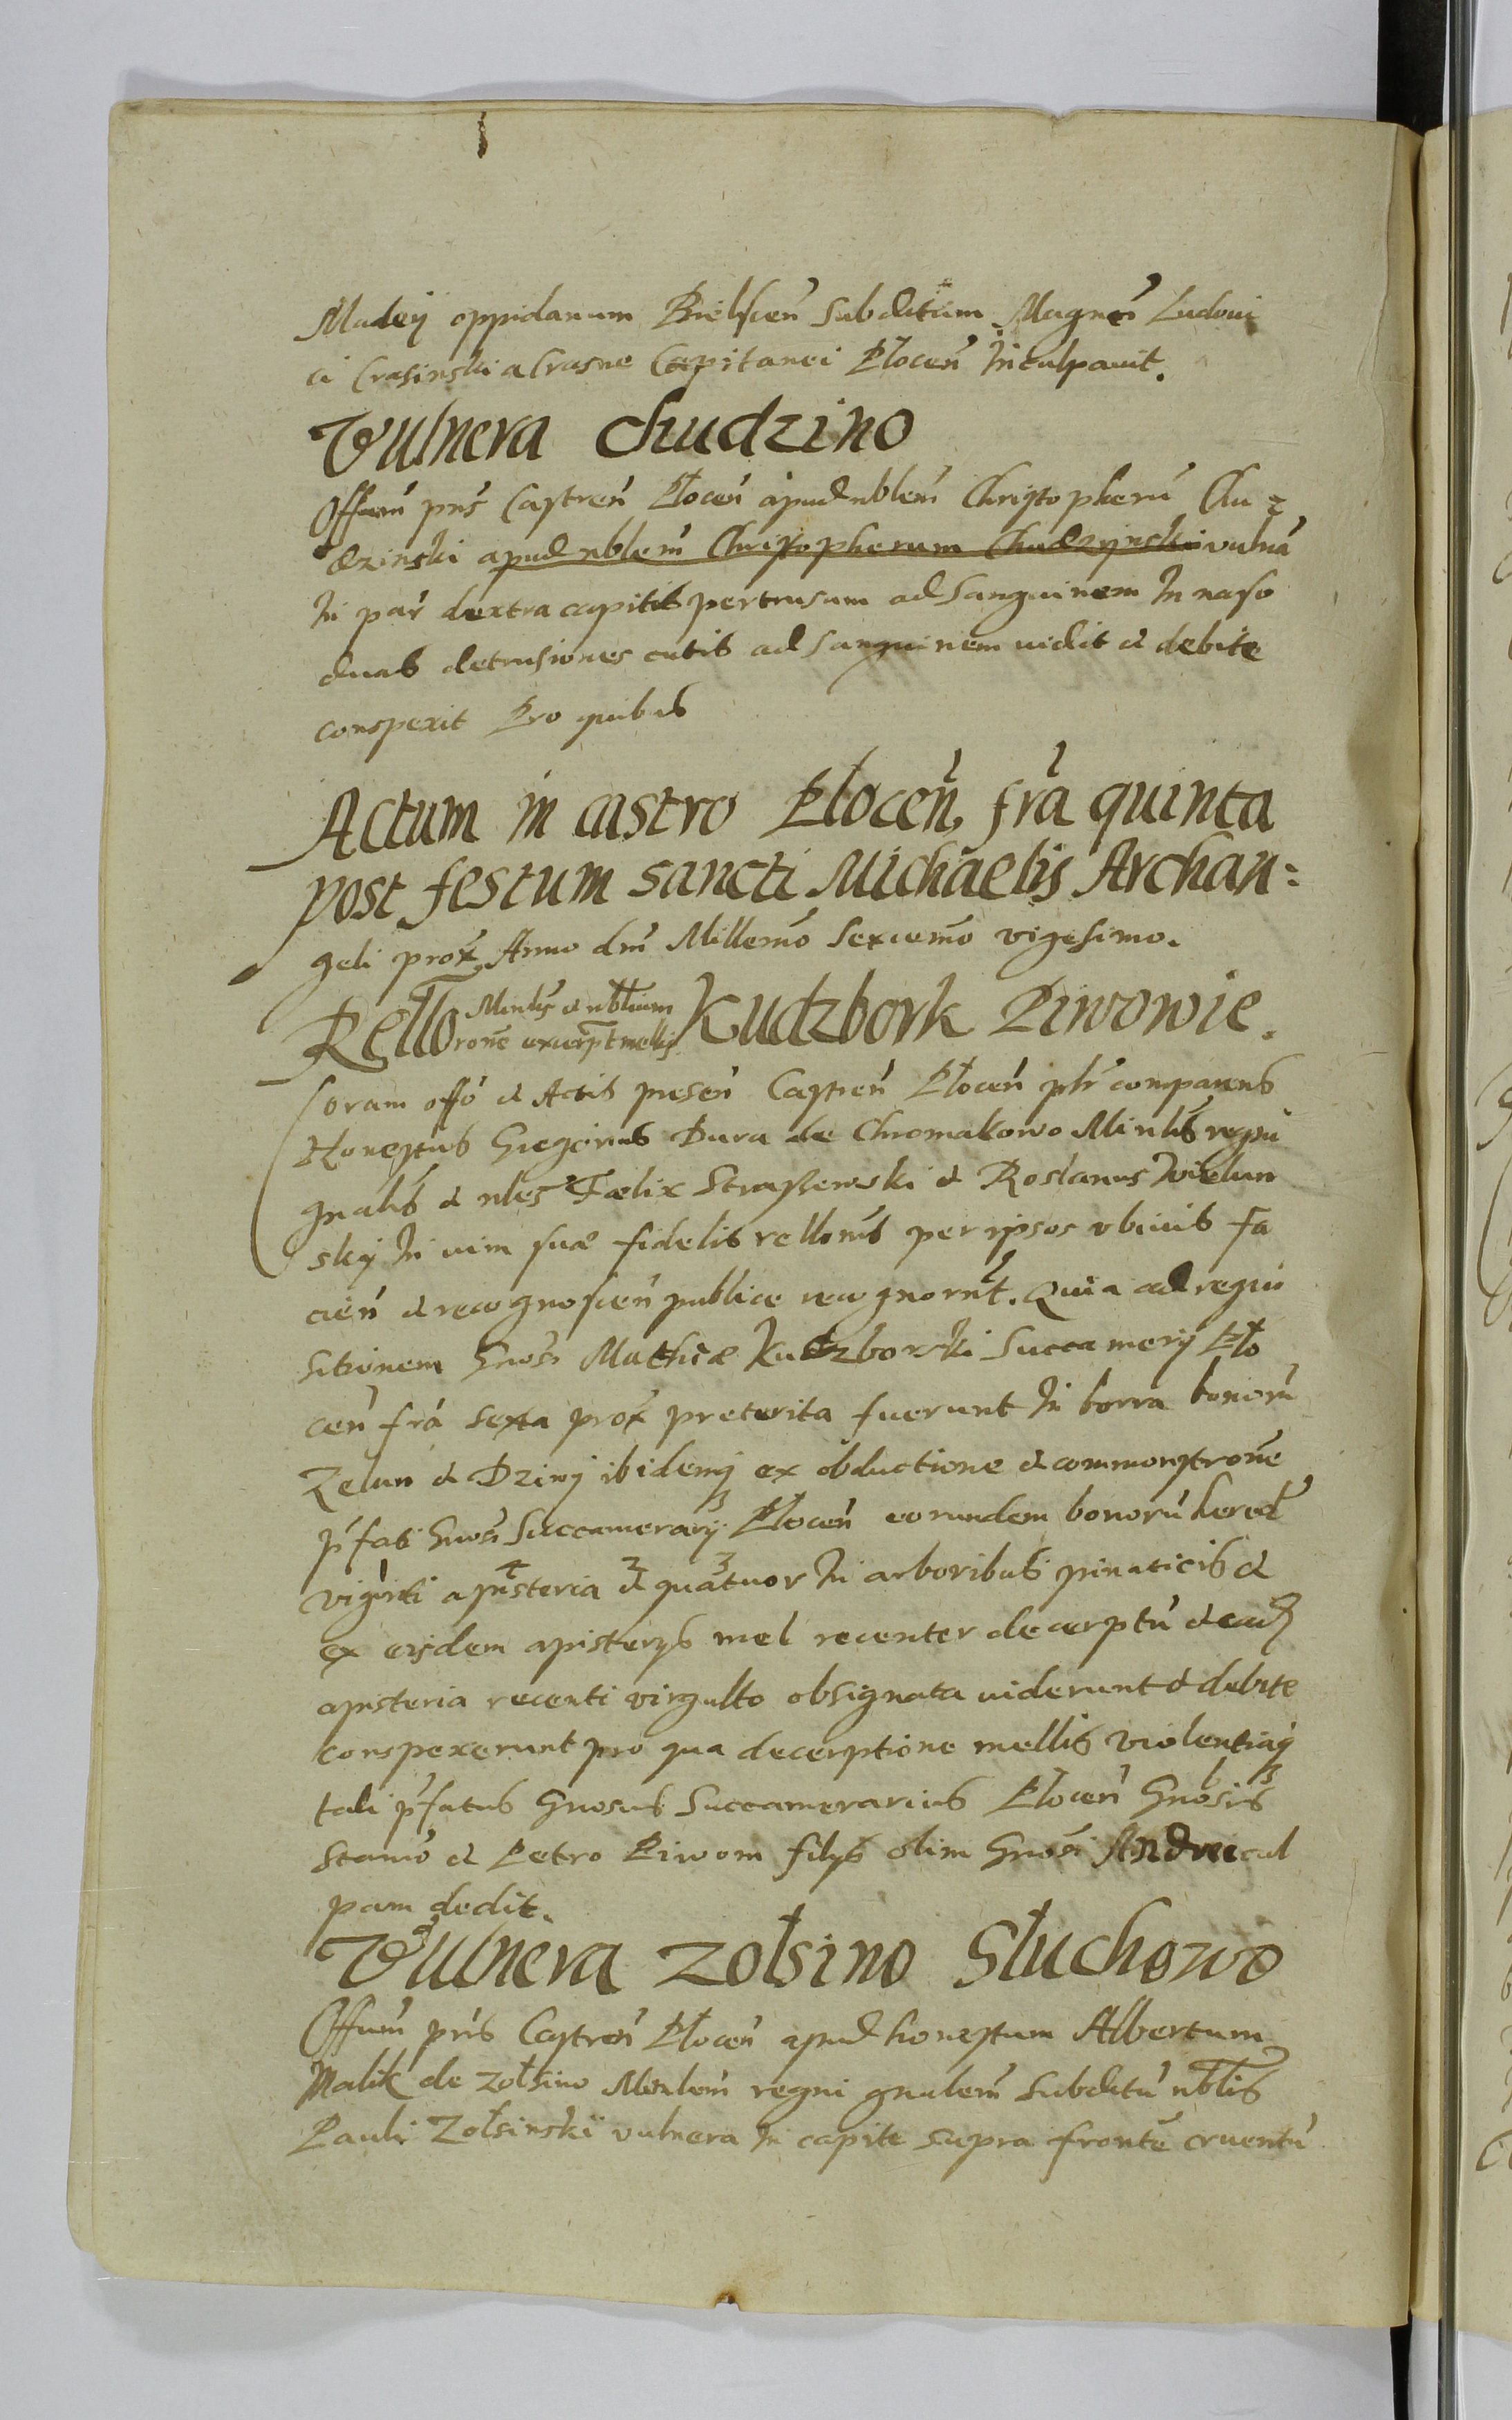 Madey oppidanum Bielscen̄ subditum Magnci Ludoui
ci Crasinski a Crasne Capitanei Płocen̄ Inculpauit.
Vulnera Chudzino
Offum̄ pn̄s Castren̄ Płocen̄ apud nblem̄ Christopherū Chu=
dzinski apud nblem̄ Christopherum Chudzynski vulnā
In par̄ dextra capitis pertrusum ad sanguinem In naso
duas detrusiones cutis ad sanguinem uidit et debite
conspexit Pro quibus
Actum in castro Płocen̄, fr̄a quinta
post festum sancti Michaelis Archan=
geli prox̄. Anno dnī Millemō sexcemō vigesimo.
Rello Minlis̄ et nbłium Kudzbork Piwowie.
ronē excerpt mellis
Coram offō et Actis presen̄ Castren̄ Płocen̄ plr̄ comparens
Honestus Gregorius Dura de Chromakowo Minlis̄ regni
gnalis̄ et nles̄ Fælix Straszewski et Roslanus Wielun
skij In uim suæ fidelis rellonis̄ per ipsos vbiuis fa
cien̄ et recognoscen̄ publice recognorūt. Quia ad requi
sitionem Gnosi Mathiæ Kudzborski Succamerij Pło
cen̄ fr̄a sexta prox̄ preterita fuerunt In borra bonorū
Zelun et Dziwy ibidemq ex obductione et commonstronē
p̄fati Gnosi Succamerarij Płocen̄ eorundem bonorū hered̄
viginti apisteria et quatuor In arboribus pinaticis et
ex eisdem apisterijs mel recenter decerptū et eadem
apisteria recenti virgulto obsignata uiderunt et debite
conspexerunt pro qua decerptione mellis violentiaq
tali p̄fatus Gnosus Succamerarius Płocen̄ Gnosis
Stanō et Petro Piwom filijs olim Gnosi Andreæ cul
pam dedit.
Vulnera Zołsino Słuchowo
Offum̄ pn̄s Castren̄ Płocen̄ apud honestum Albertum
Malik de Zołsino Minlem̄ regni gnalem̄ subditū nbłis
Pauli Zołsinski vulnera In capite supra frontē cruentū